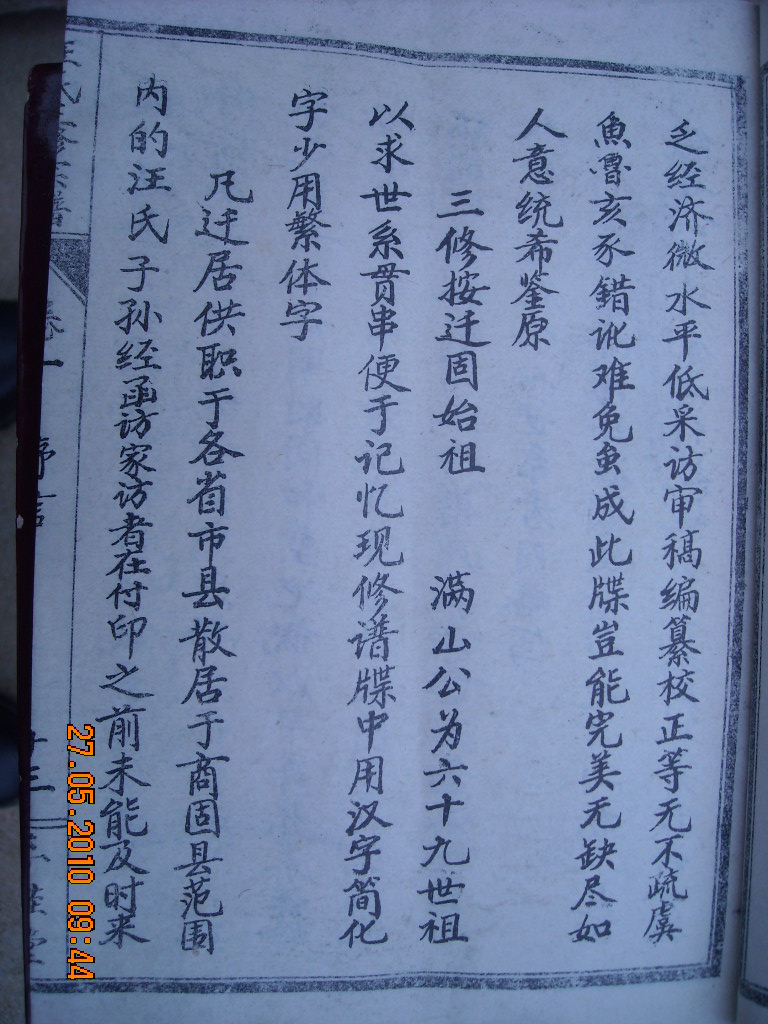 乏经济微水平低采访审稿编纂校正等无不疏虞
魚魯亥豕錯讹难免虽成此牒岂能完美无缺尽如
人意统希鉴原
三修按迁固始祖 满山公为六十九世祖
以求世系贯串便于记忆现修谱牒中用汉字简化
字少用繁体字
凡迁居供职于各省市县散居于商固县范围
内的汪氏子孙经函访家访者在付印之前未能及时来
卷一 序言 十三
27.05.2010 09:44